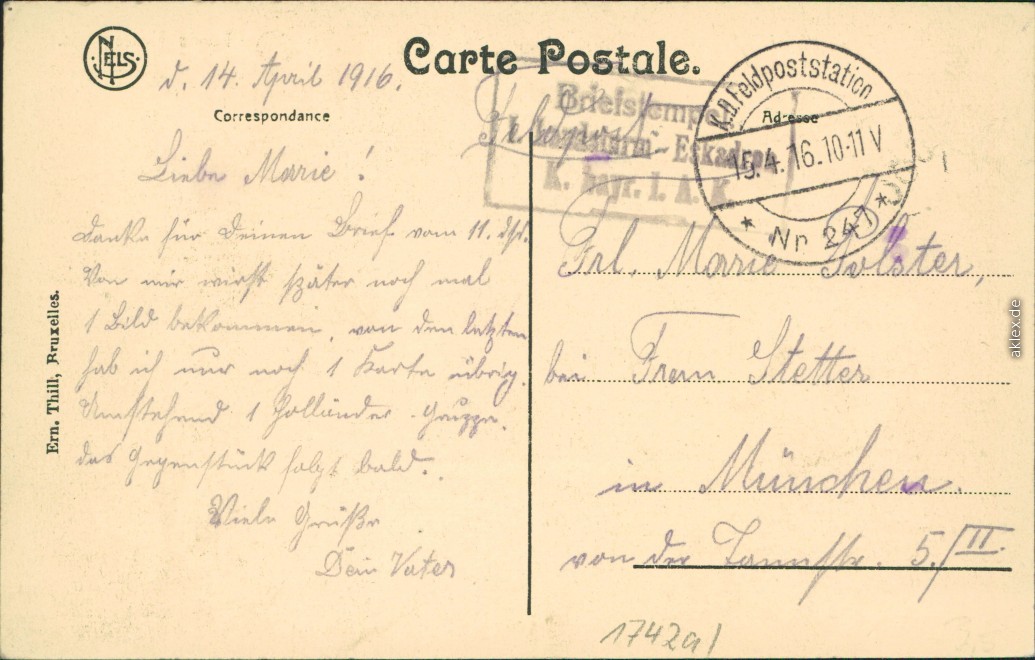 NELS
Carte Postale.
d. 14. April 1916.
Correspondance
Adresse
Feldpost
Briefstempel
Landsturm - Eskadron
K. bayr. 1. A. K.
K.D. Feldpoststation
15.4.16.10-11 V
* Nr 247 *
Liebe Marie!
Danke für Deinen Brief vom 11. ds.
Von mir wirst später noch mal
1 Bild bekommen, von den letzten
hab ich nur noch 1 Karte übrig.
Umstehend 1 Holländer-Gruppe.
das Gegenstück folgt bald.
Viele Grüße
Dein Vater
Frl. Marie Polster,
bei Frau Stetter
in München.
von der Tannstr. 5./II.
Ern. Thill, Bruxelles.
1742a
aklex.de